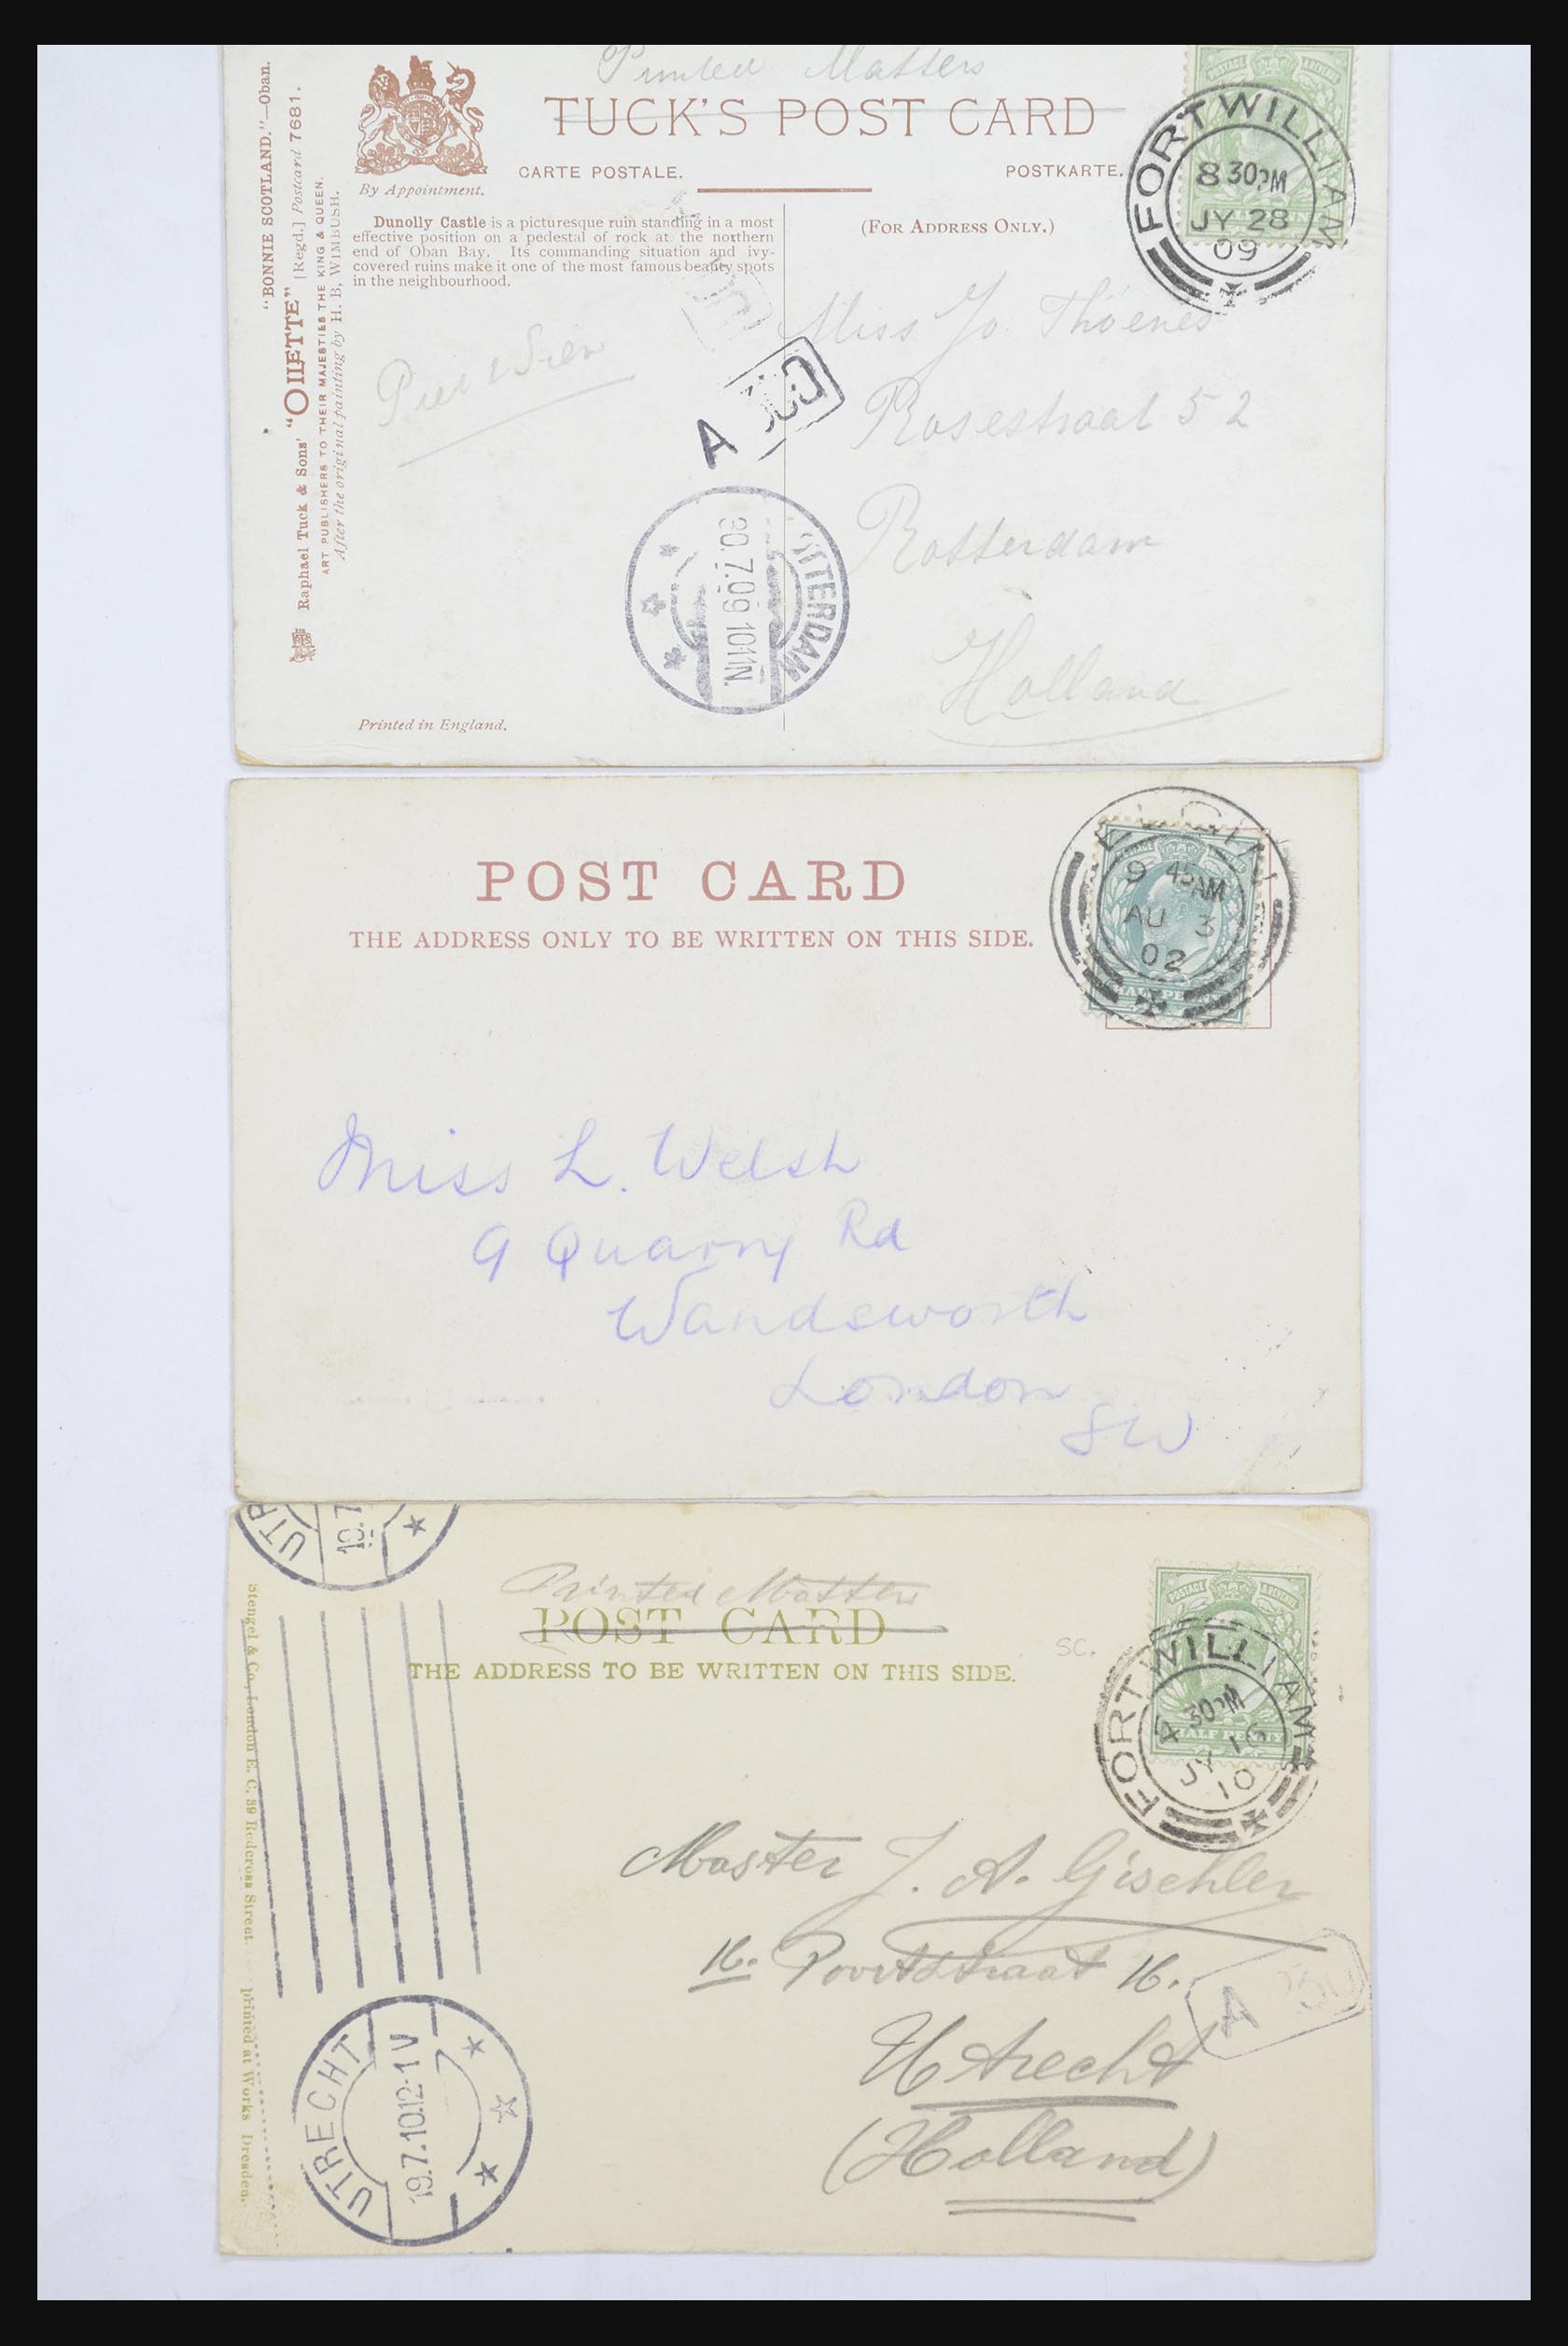 Printed Matters
TUCK'S POST CARD
CARTE POSTALE.
POSTKARTE.
By Appointment.
(FOR ADDRESS ONLY.)
Dunolly Castle is a picturesque ruin standing in a most
effective position on a pedestal of rock at the northern
end of Oban Bay. Its commanding situation and ivy-
covered ruins make it one of the most famous beauty spots
in the neighbourhood.
"BONNIE SCOTLAND."—Oban.
Raphael Tuck & Sons' "OILETTE" [Regd.] Postcard 7681.
ART PUBLISHERS TO THEIR MAJESTIES THE KING & QUEEN.
After the original painting by H. B. WIMBUSH.
Printed in England.
FORT WILLIAM
8 30PM
JY 28
09
Miss Jo. Thoenes
Rosestraat 52
Rotterdam
Holland
A
TTERDAM
30.7.09 10-11N.
POST CARD
THE ADDRESS ONLY TO BE WRITTEN ON THIS SIDE.
9 45AM
AU 3
02
Miss L. Welsh
9 Quarry Rd
Wandsworth
London
SW
UTR
19.7
Printed Matter
POST CARD
THE ADDRESS TO BE WRITTEN ON THIS SIDE.
SC.
POSTAGE REVENUE
HALF PENNY
FORT WILLIAM
4 30PM
JY 16
10
Stengel & Co., London E. C. 39 Redcross Street printed at Works Dresden.
Master J. A. Gischler
16. Poortstraat 16.
Utrecht
(Holland)
A
UTRECHT
19.7.10.12-1V